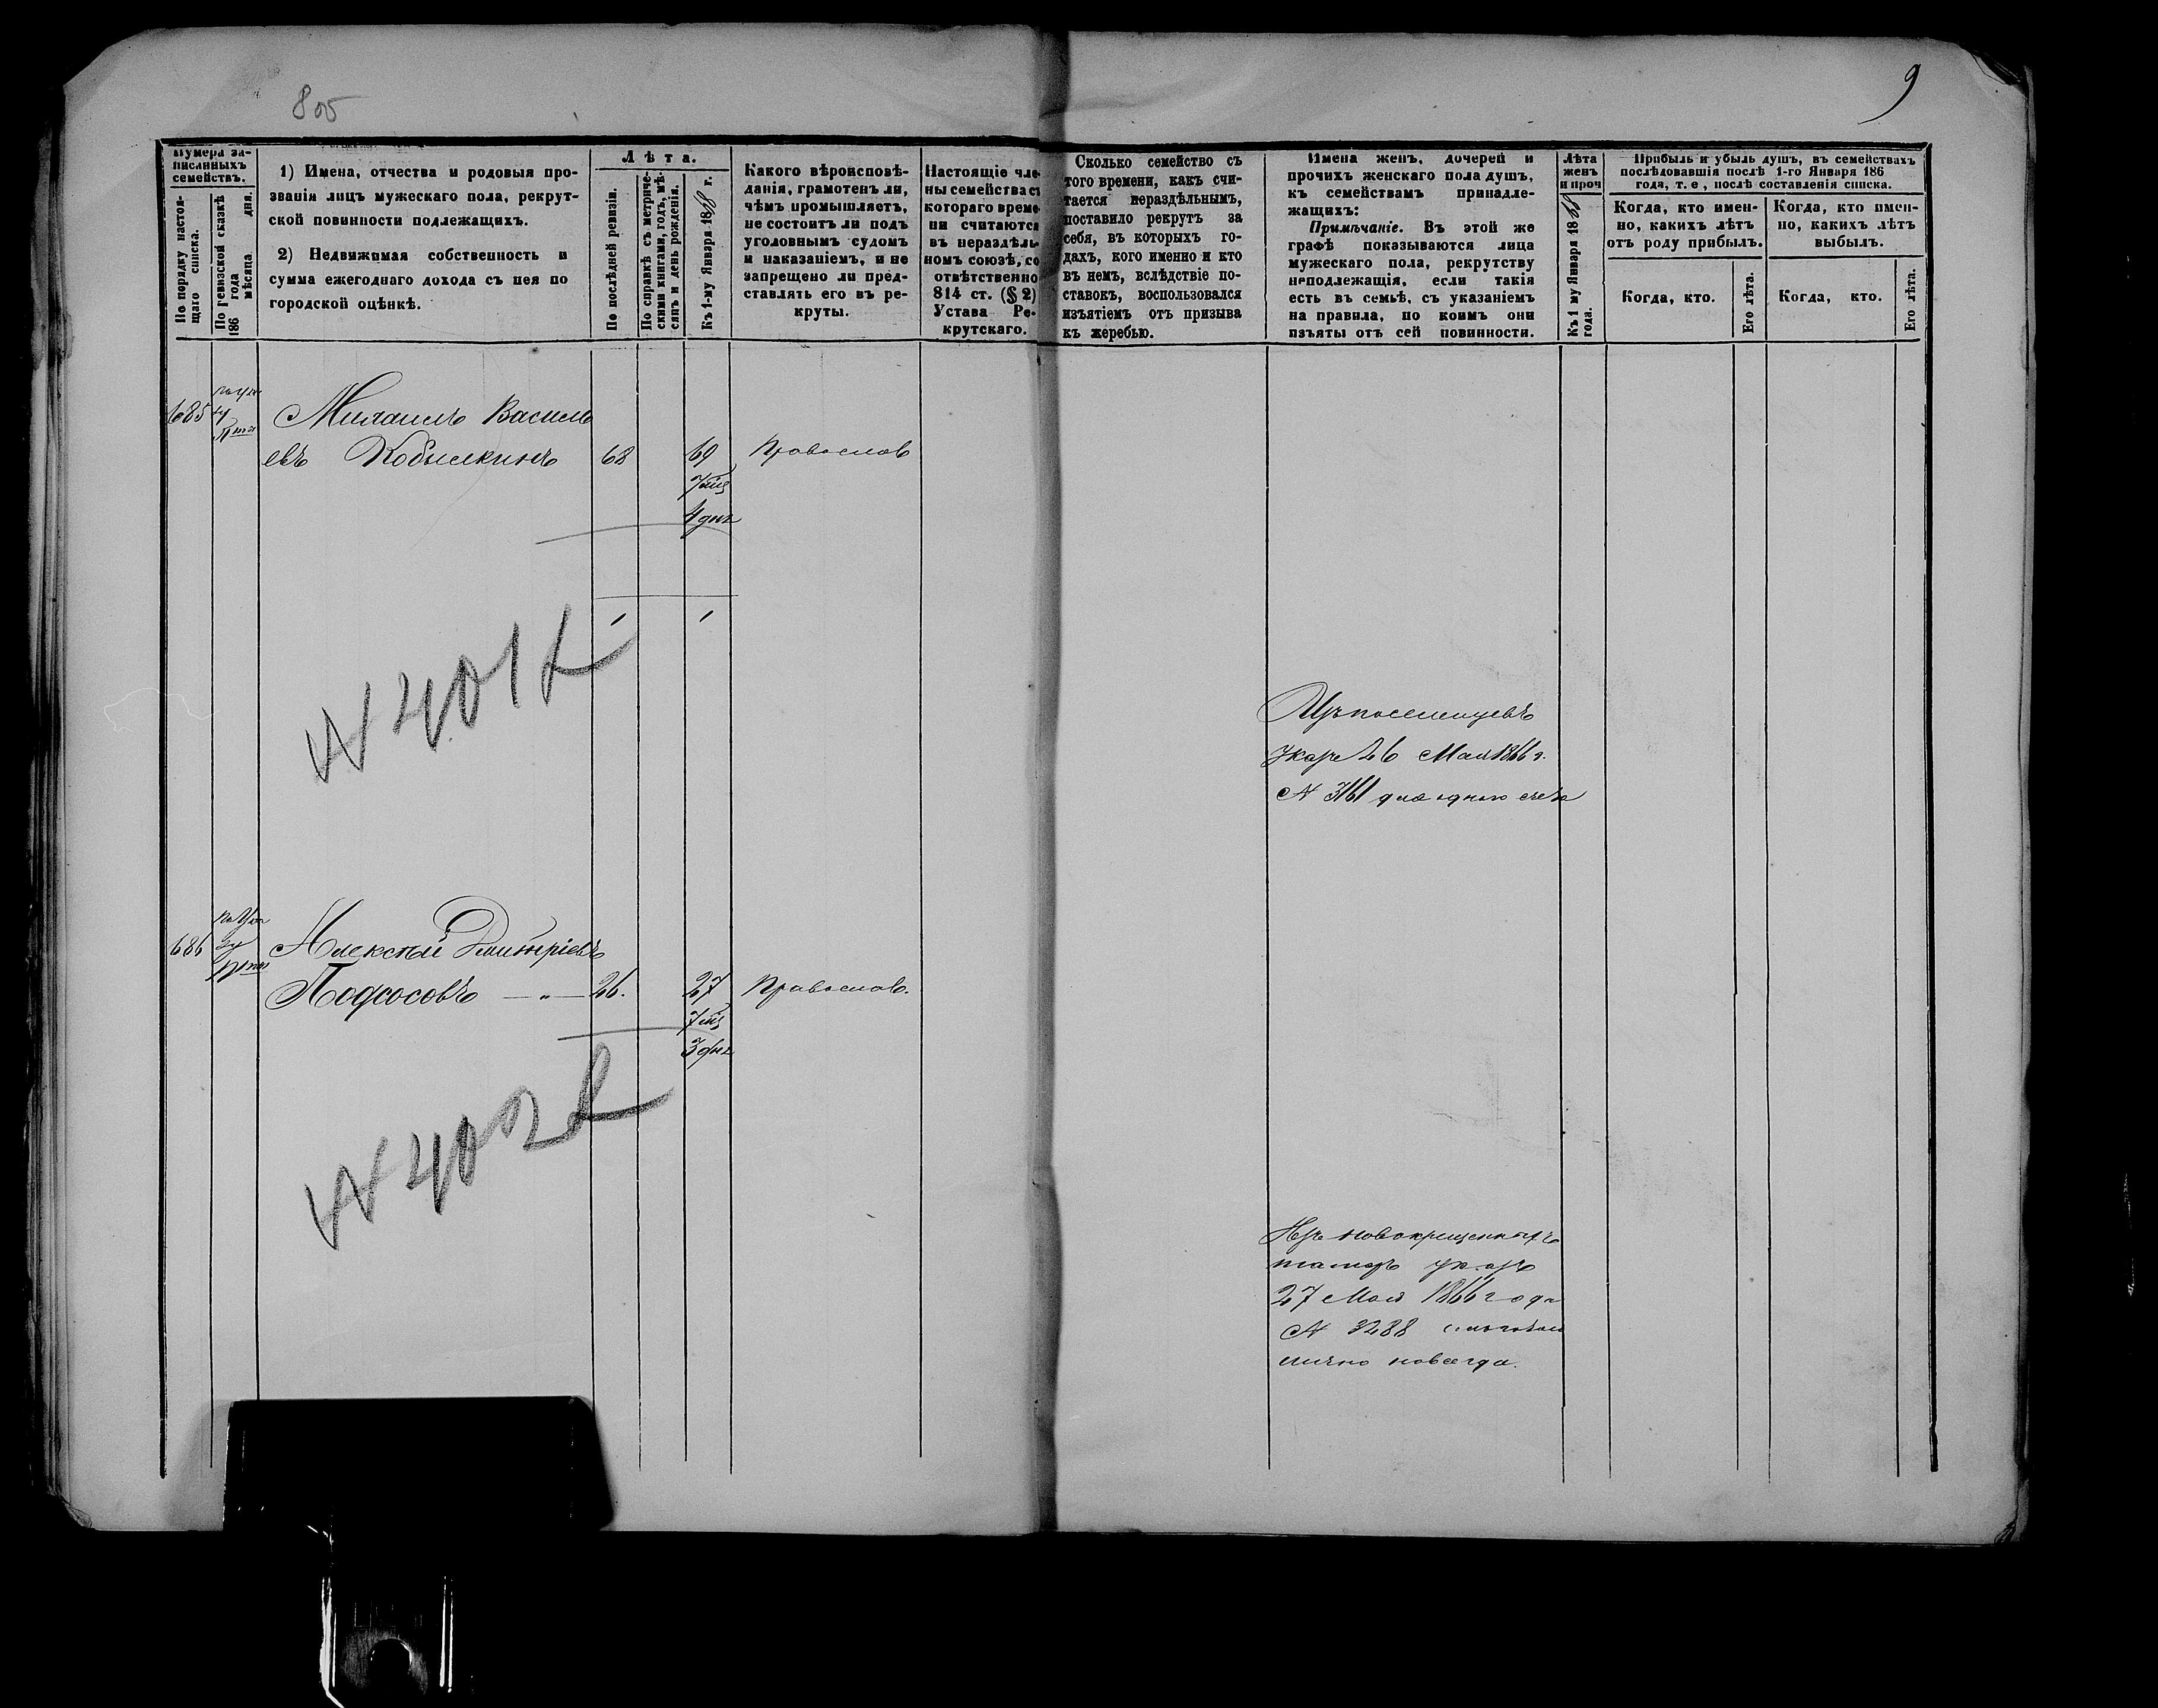 805
9
Нумера за-
писанныхъ
семействъ.
По порядку настоя-
щаго списка.
По ревизской сказкѣ
186 года мѣсяца дня.
1) Имена, отчества и родовыя про-
званія лицъ мужескаго пола, рекрут-
ской повинности подлежащихъ.
2) Недвижимая собственность и
сумма ежегоднаго дохода съ нея по
городской оцѣнкѣ.
Лѣта.
По послѣдней ревизіи.
По справкѣ съ метриче-
скими книгами, годъ, мѣ-
сяцъ и день рожденія.
Къ 1-му Января 1868 г.
Какого вѣроисповѣ-
данія, грамотенъ ли,
чѣмъ промышляетъ,
не состоитъ ли подъ
уголовнымъ судомъ
и наказаніемъ, и не
запрещено ли пред-
ставлять его въ ре-
круты.
Настоящіе чле
ны семейства съ
котораго време
ни считаются
въ нераздѣль
номъ союзѣ, со
отвѣтственно
814 ст. (§ 2)
Устава Ре-
крутскаго.
Сколько семейство съ
того времени, какъ счи-
тается нераздѣльнымъ,
поставило рекрутъ за
себя, въ которыхъ го-
дахъ, кого именно и кто
въ немъ, вслѣдствіе по-
ставокъ, воспользовался
изъятіемъ отъ призыва
къ жеребью.
Имена женъ, дочерей и
прочихъ женскаго пола душъ,
къ семействамъ принадле-
жащихъ:
Примѣчаніе. Въ этой же
графѣ показываются лица
мужескаго пола, рекрутству
неподлежащія, если такія
есть въ семьѣ, съ указаніемъ
на правила, по коимъ они
изъяты отъ сей повинности.
Лѣта
женъ
и проч
Къ 1 му Января 1868
года.
Прибыль и убыль душъ, въ семействахъ
послѣдовавшія послѣ 1-го Января 186
года, т. е., послѣ составленія списка.
Когда, кто имен-
но, какихъ лѣтъ
отъ роду прибылъ.
Когда, кто имен-
но, какихъ лѣтъ
выбылъ.
Когда, кто.
Его лѣта.
Когда, кто.
Его лѣта.
685 Михаилъ Василь
евъ Кобылкинъ 68 69 Православ
7 мц
4 дня
1 1
N 401
Изъ поселенцевъ
указъ 26 Мая 1866 г.
N 3161 для одного счета
686 Алексѣй Дмитріевъ
Подсосовъ — „ — 26. 27 Православ.
7 мц
3 дня
N 402
Изъ новокрещенныхъ
татаръ указъ
27 Мая 1866 года
N 3288 с льготою
лично навсегда.